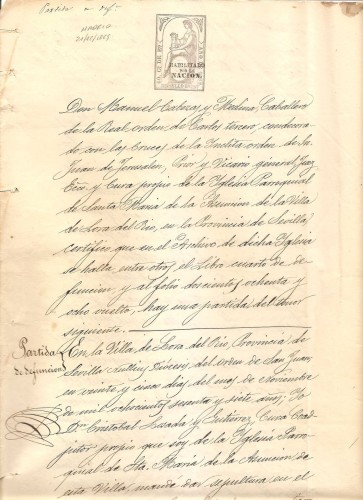 Partida
MADRID
HABILITADO
POR LA
NACION.
Don Manuel y Medina Caballero
de la Real orden de Carlos tercero, condecora-
do con las Cruces de la Ínclita orden de Sn.
Juan de Jerusalen, Prior y Vicario general, Juez
Eco. y Cura propio de la Yglesia Parroquial
de Santa María de la Asuncion de la Villa
de Lora del Rio, en la Provincia de Sevilla,
certifico que en el Archivo de dicha Yglesia
se halla entre otros el Libro cuarto de de-
funcion, y al folio doscientos ochenta y
ocho vuelto, hay una partida del tenor
siguiente.
Partida
de defuncion
En la Villa de Lora del Rio, Provincia de
Sevilla del orden de San Juan,
en veinte y cinco dias del mes de Noviembre
de mil ochocientos sesenta y siete años; Yo
D. Cristobal Lozada y Gutierrez, Cura Coad-
jutor propio que soy de la Yglesia Parro-
quial de Sta. María de la Asuncion de
esta Villa, mandé dar sepultura en el